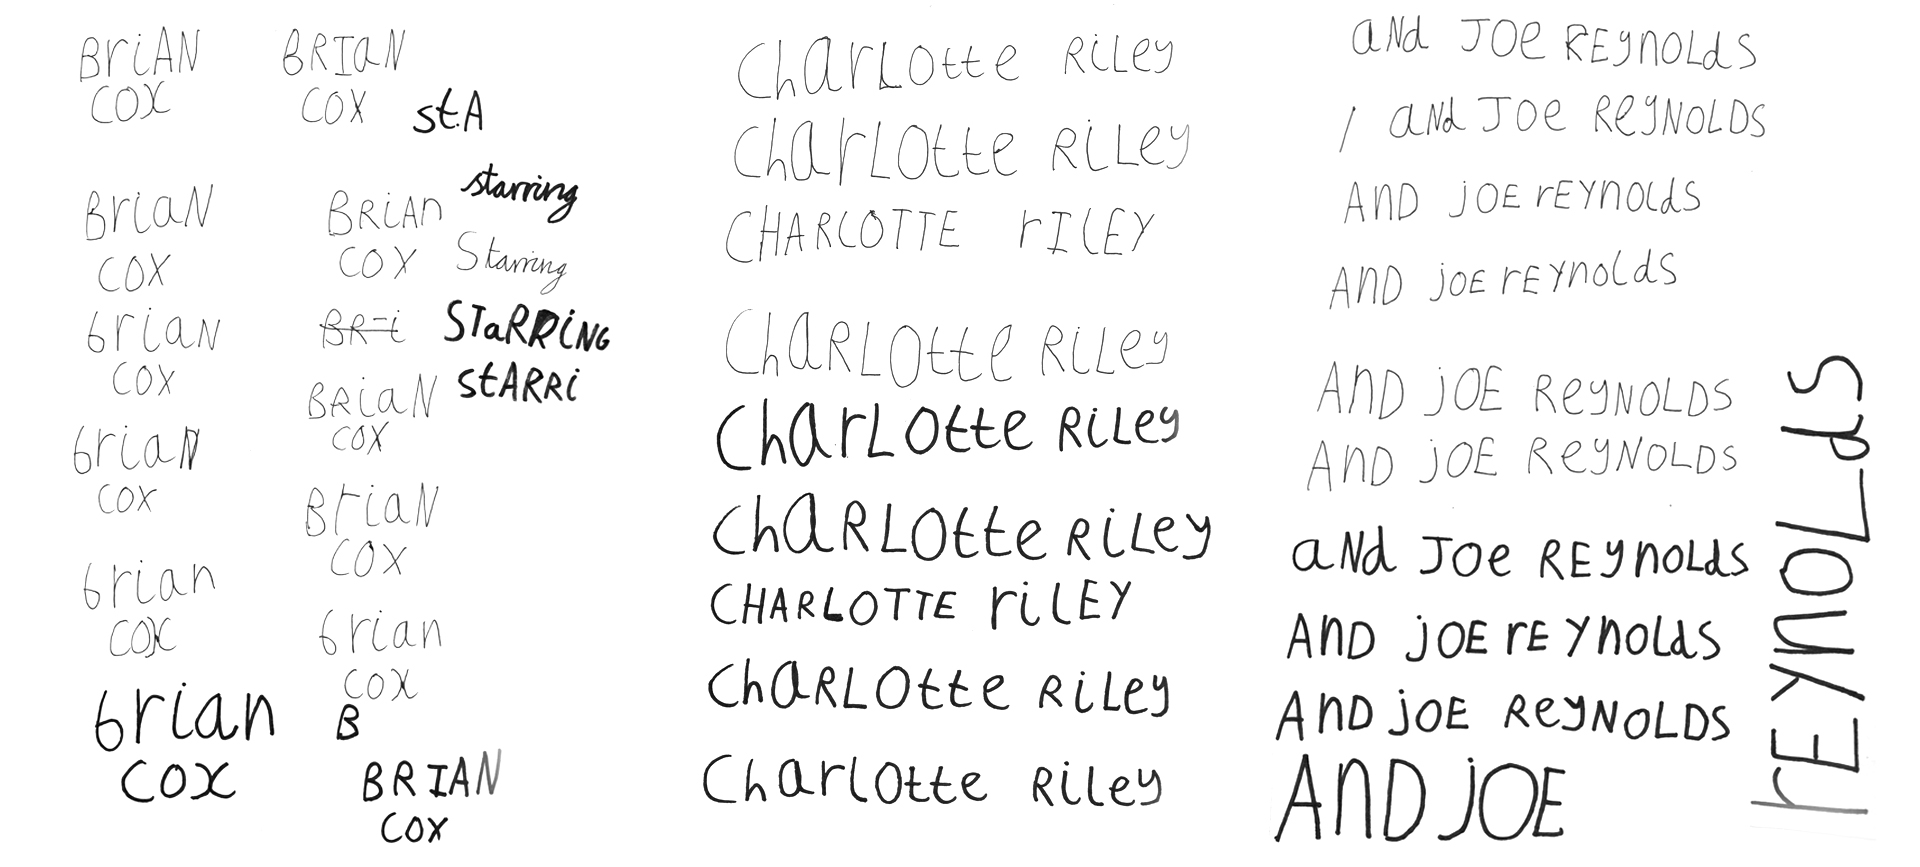 BriAN
COX
BRIaN
COX
stA
BriaN
COX
BRiAn
COX
starring
Starring
6riaN
COX
BR-i
STaRRiNG
stARRi
BRiaN
COX
6riaN
COX
BriaN
COX
6rian
COX
6rian
COX
6rian
COX
B
BRIAN
COX
CharLotte RiLey
CharLOtte RiLey
CHARLOTTE rILEY
ChaRLOtte RiLey
CharLOtte RiLey
ChaRLOtte RiLey
CHARLOTTE riLEY
ChaRLOtte RiLey
CharlOtte RiLey
aNd JOe REynOLds
/ aNd JOe ReyNOLDS
AnD jOE rEYnOlds
AnD jOE rEYnOlds
AnD jOE ReyNOLDS
AnD jOE ReyNOLDS
aNd JOe REynOLds
AnD jOE rEYnOLds
AnD jOE ReyNOLDS
AnD jOE
rEYnOLds